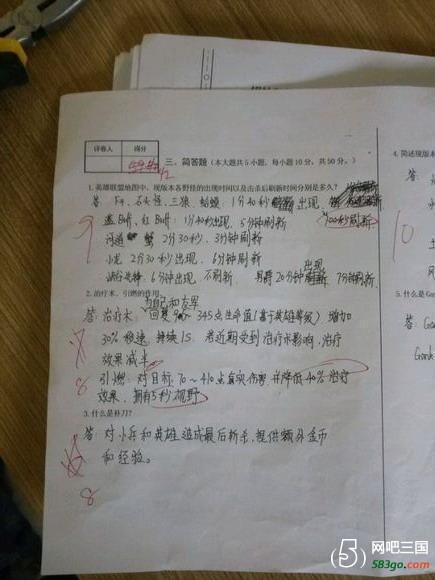 评卷人 得分
三、简答题（本大题共5小题，每小题10分，共50分。）
1.英雄联盟地图中，现版本各野怪的出现时间以及击杀后刷新时间分别是多久？
答：F4、石头怪、三狼、蛤蟆：1分40秒出现，100秒刷新
蓝Buff、红Buff：1分40秒出现，5分钟刷新
河道蟹 2分30秒，3分钟刷新
小龙 2分30秒出现，6分钟刷新
峡谷先锋 6分钟出现 不刷新 男爵20分钟出现 7分钟刷新
9
2.治疗术、引燃的作用
与自己和友军
答：治疗术：回复90～345点生命值(基于英雄等级) 增加
30%移速，持续1S. 若近期受到治疗术影响，治疗
效果减半
引燃：对目标70～410点真实伤害 并降低40%治疗
效果，拥有5秒视野
8
3.什么是补刀？
答：对小兵和英雄造成最后斩杀，提供额外金币
和经验。
8
4.简述现版本
答：
10
5.什么是Ga
答：Gan
Gank
5 网吧三国
583go.com